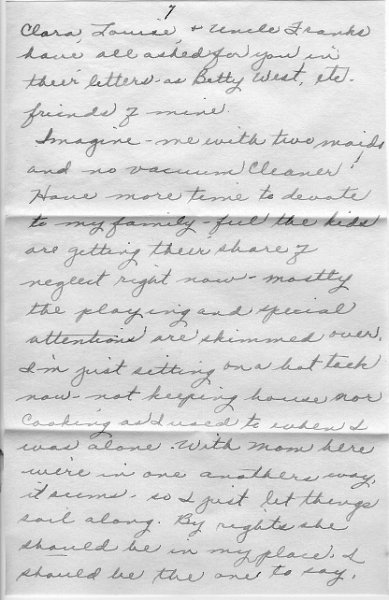 7
Clara, Louise, & Uncle Franks
have all asked for you in
their letters - as Betty West, etc.
friends of mine.
Imagine - me with two maids
and no vacuum cleaner!
Have more time to devote
to my family - feel the kids
are getting their share of
neglect right now - mostly
the playing and special
attentions are skimmed over.
I'm just sitting on a hot tack
now - not keeping house nor
cooking as I used to when I
was alone. With Mom here
we're in one anothers way,
it seems - so I just let things
sail along. By rights she
should be in my place. I
should be the one to say,